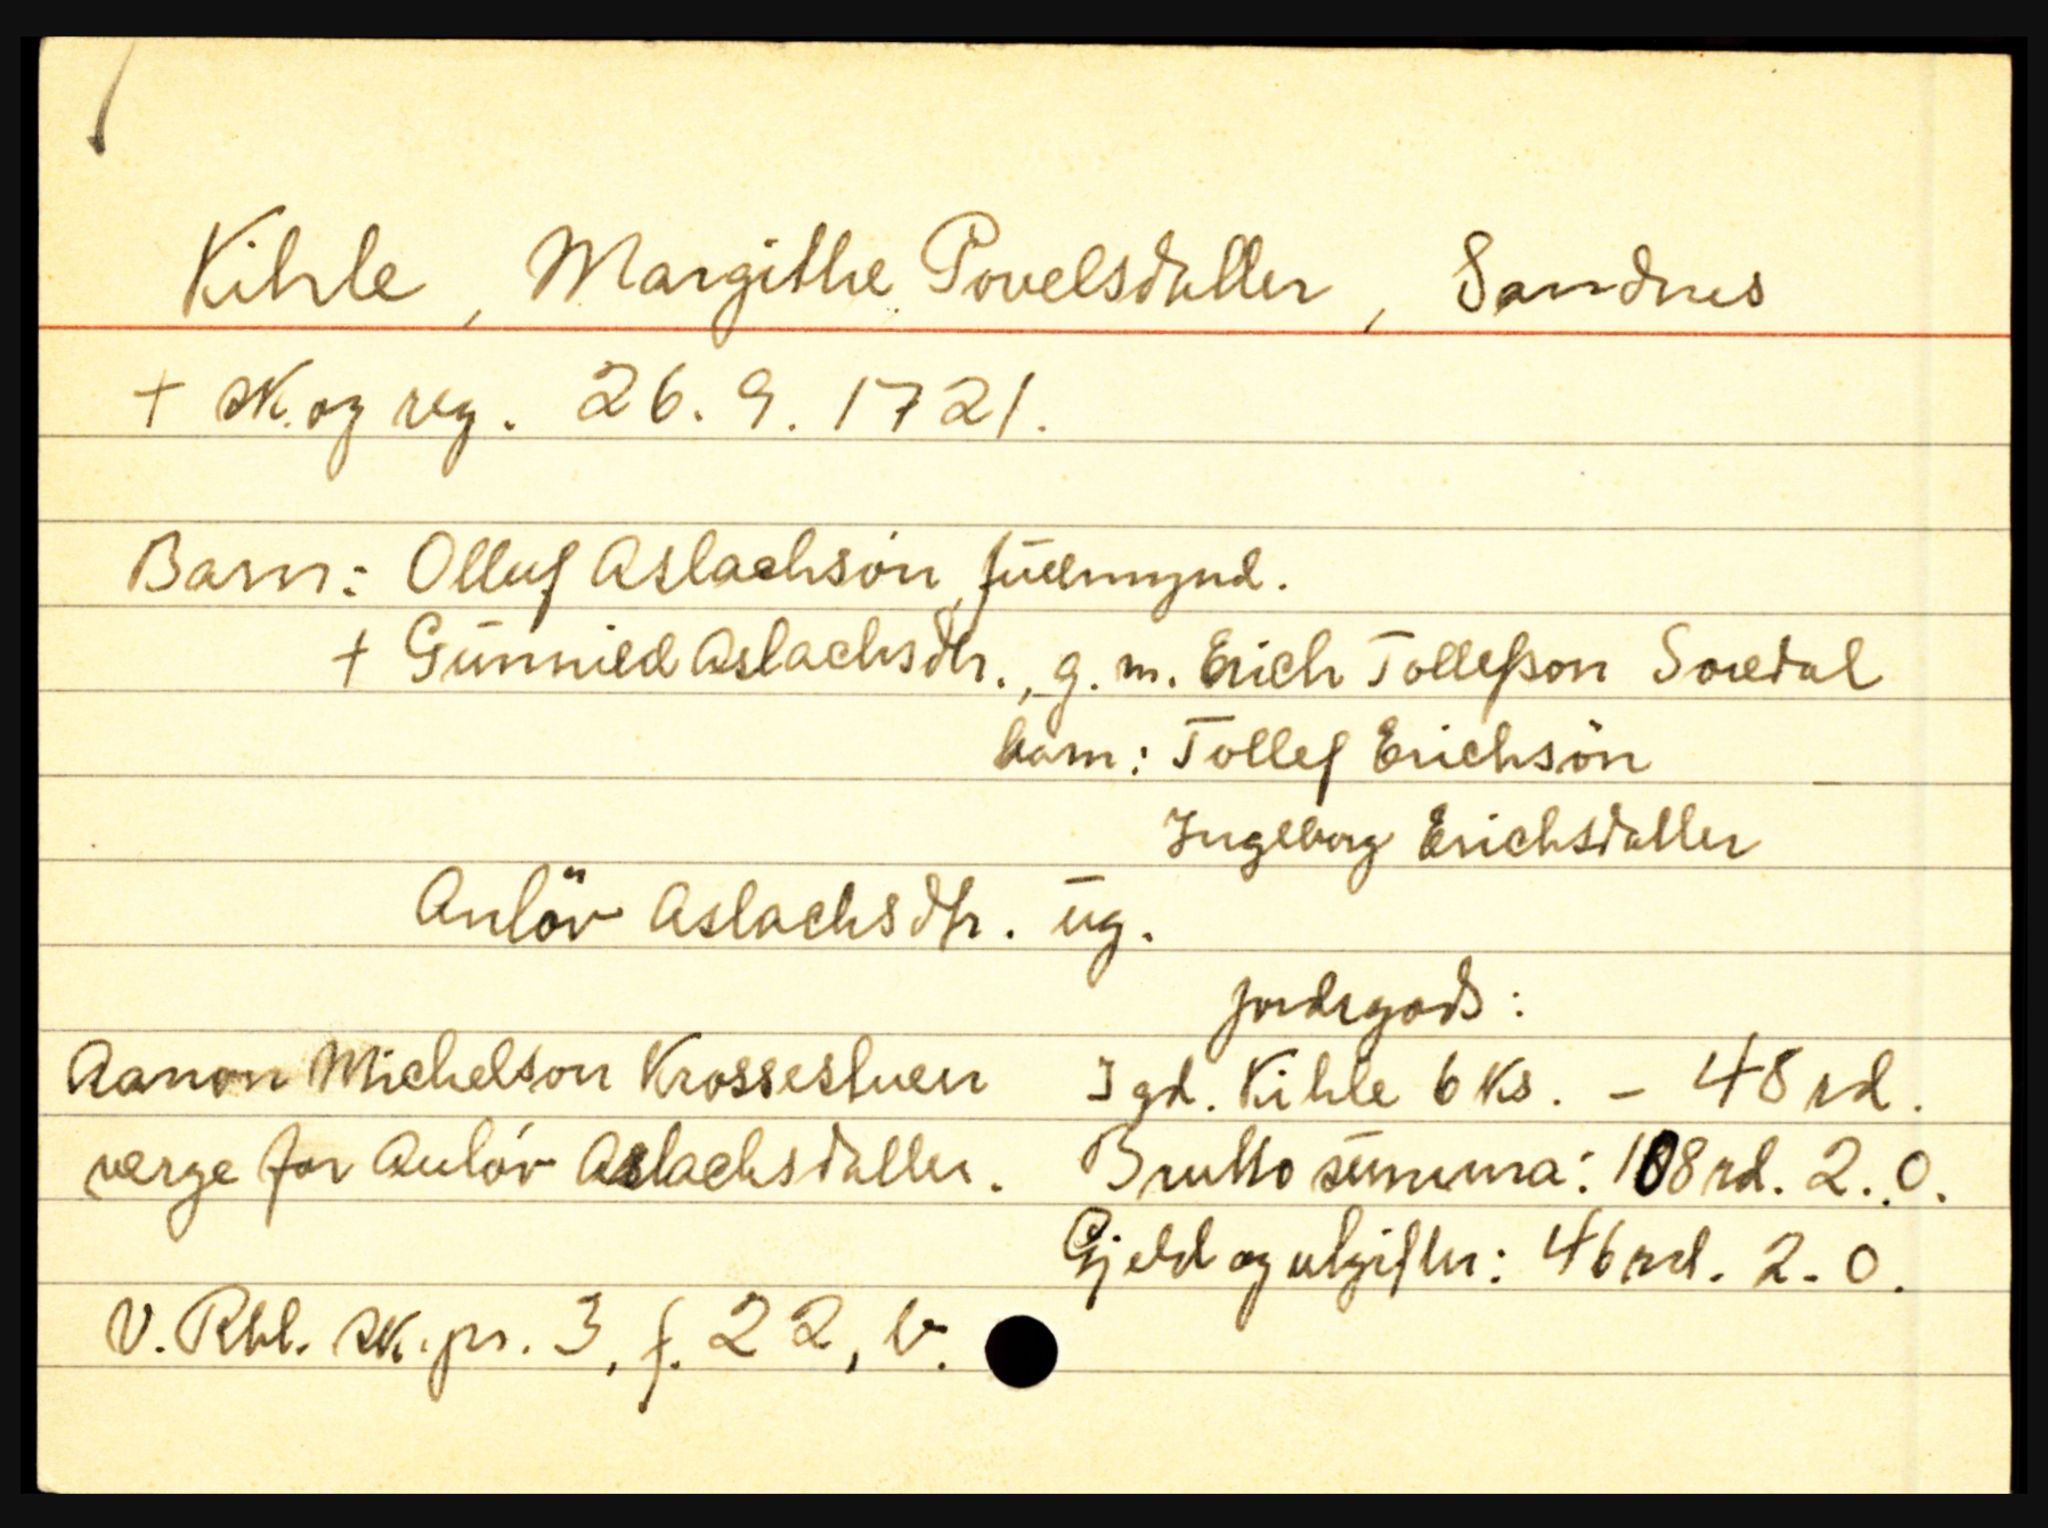 Kihle, Margithe Povelsdatter, Sandnes
+ sk. og reg. 26. 9. 1721.
Barn: Olluf Aslachsön, fúllmynd.
+ Gúnnild Aslachsdtr., g. m. Erich Tollefson Soredal
barn: Tollef Erichsön
Ingeborg Erichsdatter
Anlöv Aslachsdtr. úg.
jordegods:
Aanon Michelson Krossestuen
I gd. Kihle 6 ks. - 48 rd.
verge for Anlöv Aslachsdatter.
Brutto súmma: 108 rd. 2. 0.
Gjeld og utgifter: 46 rd. 2. 0.
V. Rbl. sk. pr. 3, f. 22, b.